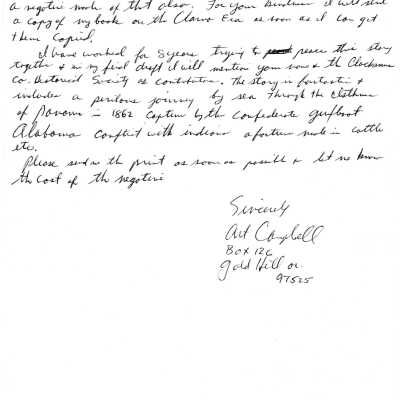 a negative made of that also. For your kindness I will send
a copy of my book on the Clarno Era as soon as I can get
them Copied.
I have worked for 8 years trying to peace this story
together & in my first draft I will mention your name & the Clackamas
Co. Historical Society as contributors. The story is fantastic &
includes a perilous journey by sea through the Isthmus
of Panama - 1862 Capture by the confederate gunboat
Alabama conflict with indians a fortune made in cattle
etc.
Please send me the print as soon as possible & let me know
the cost of the negative
Sincerely
Art Campbell
Box 126
Gold Hill or.
97525